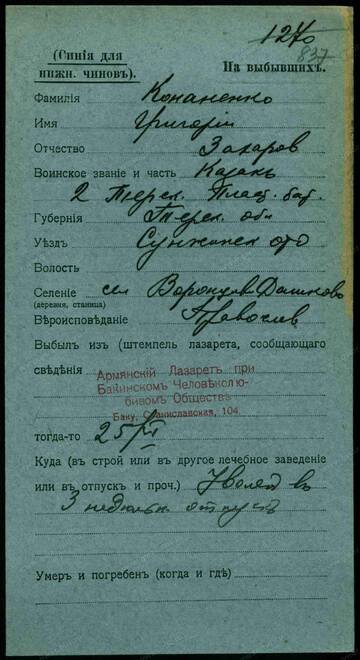 1270
837
(Синія для нижн. чиновъ).
На выбывшихъ.
Фамилія Конаненко
Имя Григорій
Отчество Захаров
Воинское званіе и часть Казакъ
2 Терск. Пласт. бат.
Губернія Терск. обл
Уѣздъ Сунженск отд
Волость
Селеніе сел Воронцов Дашково
(деревня, станица)
Вѣроисповѣданіе Православ
Выбылъ изъ (штемпель лазарета, сообщающаго
свѣдѣнія
Армянскій Лазаретъ при
Бакинскомъ Человѣколю-
бивомъ Обществѣ
Баку, Станиславская, 104
тогда-то 25/VI
Куда (въ строй или въ другое лечебное заведеніе
или въ отпускъ и проч.) Уволен в
3 недельн отпуск
Умеръ и погребенъ (когда и гдѣ)